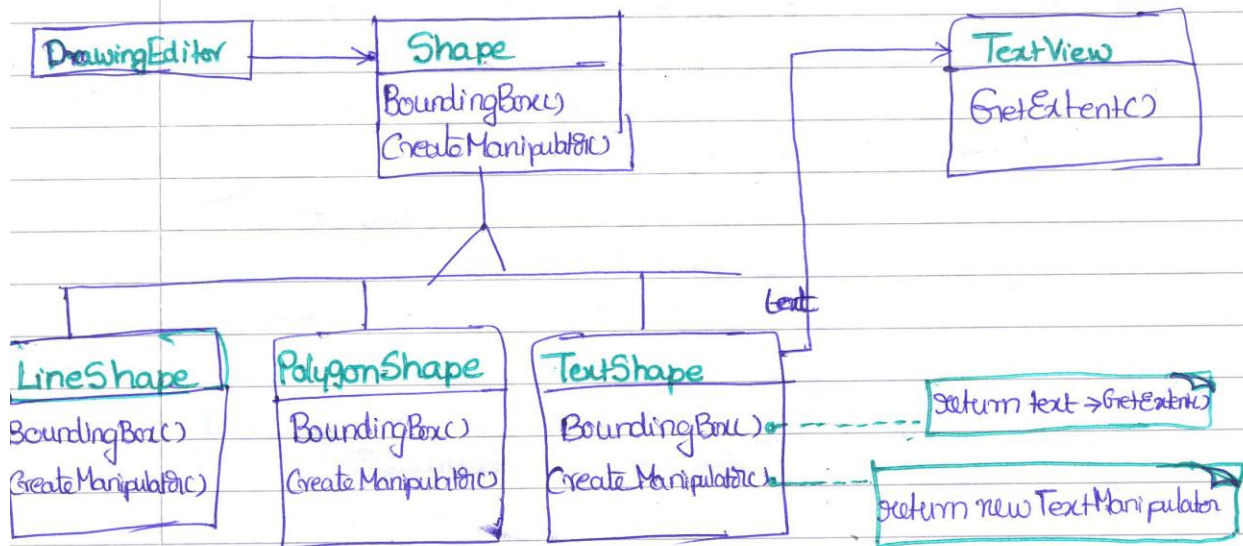 DrawingEditor
Shape
BoundingBox()
CreateManipulator()
TextView
GetExtent()
text
LineShape
BoundingBox()
CreateManipulator()
PolygonShape
BoundingBox()
CreateManipulator()
TextShape
BoundingBox()
CreateManipulator()
return text → GetExtent()
return new TextManipulator